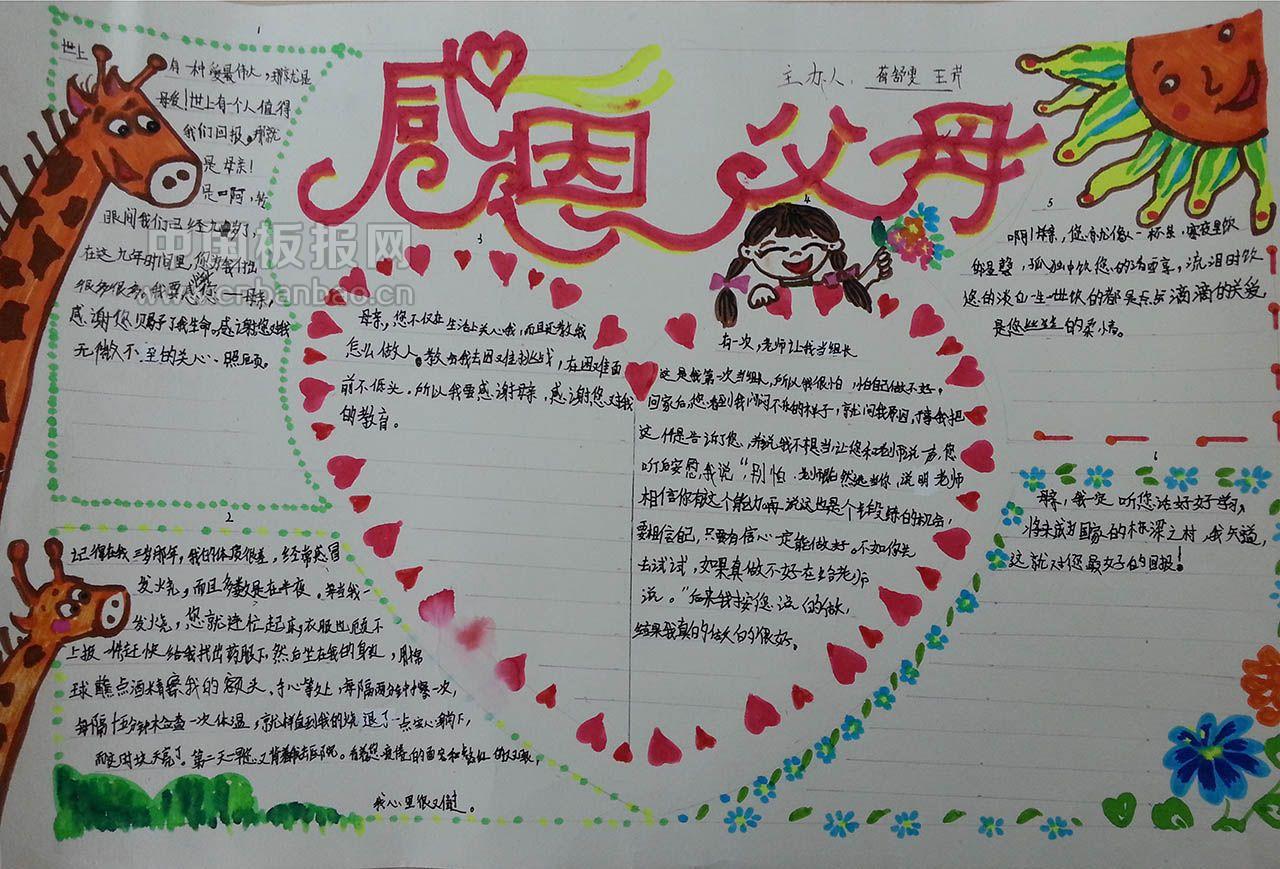 感恩 父母
主办人: 王芹
1
世上
有一种爱最伟大,那就是
母爱!世上有个人值得
我们回报,那就
是母亲!
是啊,转
眼间我们已经九岁了,
在这九年时间里,您为我付出
很多很多,我要感谢您——母亲,
感谢您赐予了我生命,感谢您对我
无微不至的关心、照顾。
2
记得在我三岁那年,我的体质很差,经常感冒
发烧,而且多数是在半夜。每当我一
发烧,您就连忙起床,衣服也顾不
上披一件赶快给我找出药服下,然后坐在我的身边,用棉
球蘸点酒精擦我的额头、手心等处,每隔两分钟擦一次,
每隔十五分钟检查一次体温,就这样直到我的烧退了一点安心躺下,
我心里很又
3
母亲,您不仅在生活上关心我,而且还教我
怎么做人。教育我去困难挑战,在困难面
前不低头。所以我要感谢母亲,感谢您对我
的教育。
4
有一次,老师让我当组长
这是我第一次当组长,所以我很怕,怕自己做不好,
回家后,您看到我闷闷不乐的样子,就问我原因,我把
这件事告诉了您,并说我不想当让您和老师说一声,您
听后安慰我说“别怕,老师既然选当你,说明老师
相信你有这个能力,再说这也是个锻练的机会,
要相信自己,只要有信心一定能做好。不如你先
去试试,如果真做不好在给老师
说。”后来我按您说的做,
结果我真的做的很好。
5
啊!母亲,您就像一杯茶,寒夜里饮
您是馨,孤独中饮您的清香,流泪时饮
您的淡白一生一世饮的都是点点滴滴的关爱,
是您丝丝的柔情。
6
母亲,我一定听您话好好学习,
将来成为国家的栋梁之材,我知道,
这就对您最好的回报!
中国板报网
www.cnbanbao.cn